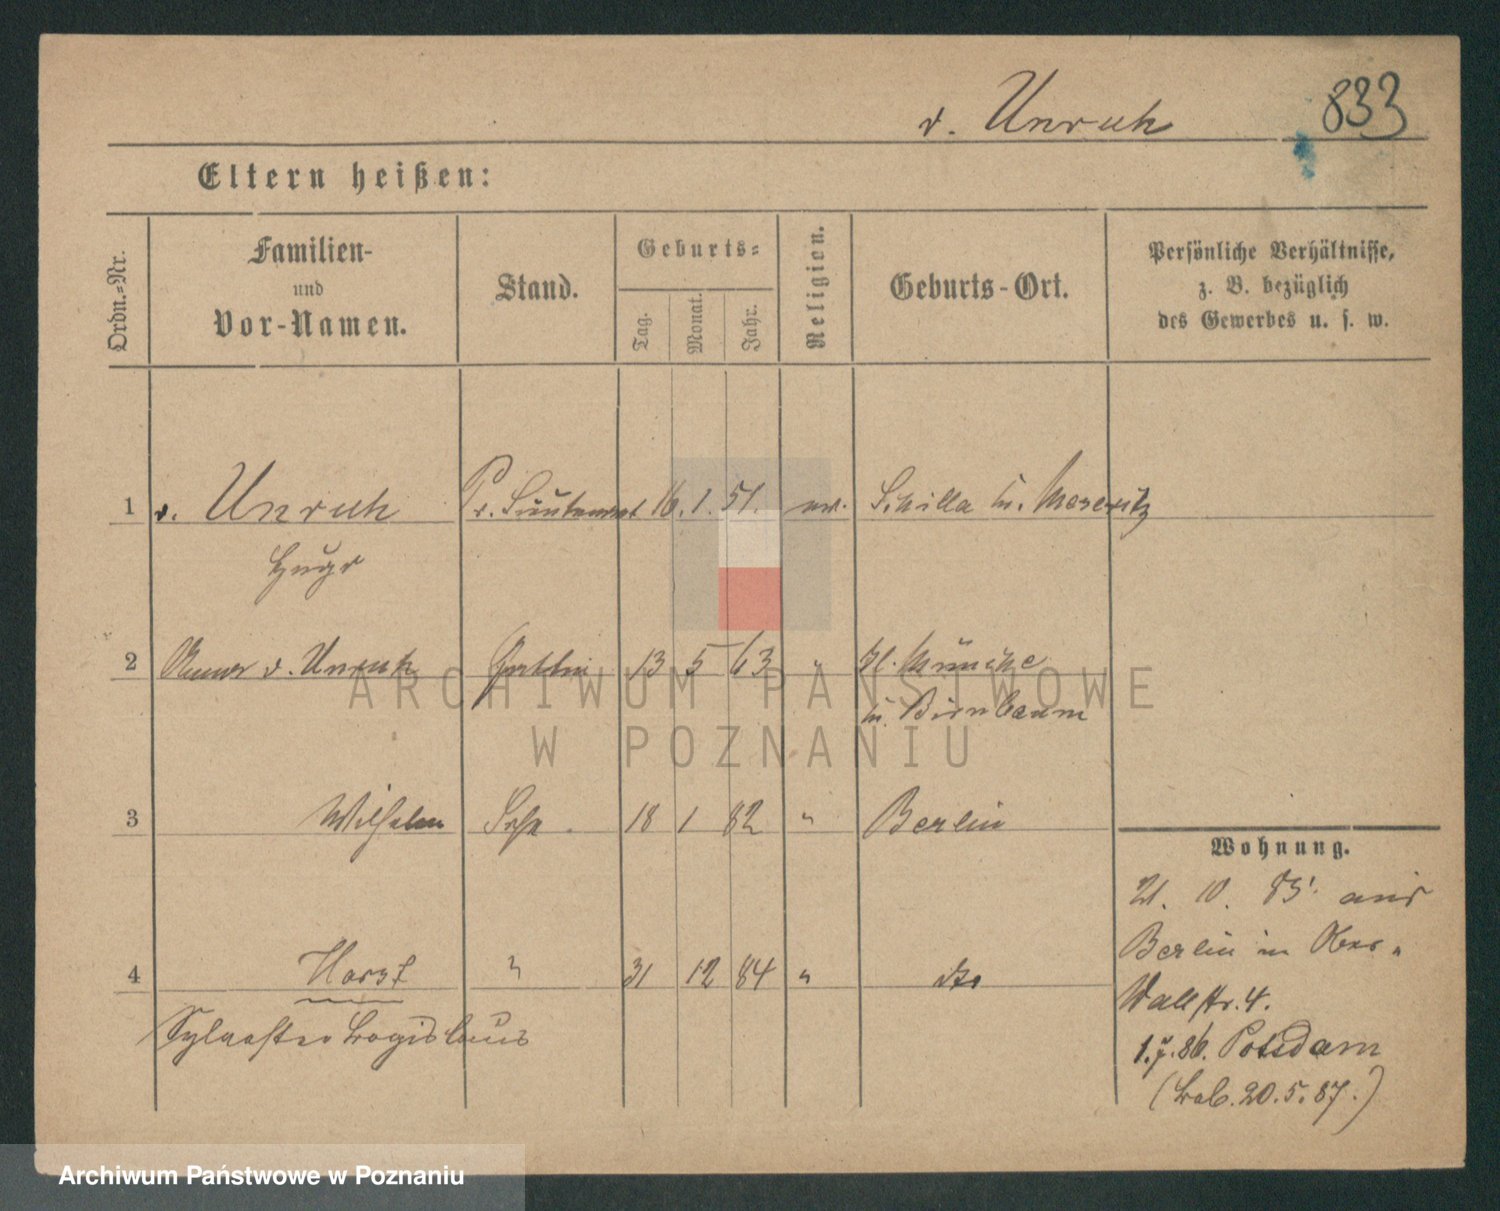 v. Unruh 833
Eltern heißen:
Ordn.-Nr.
Familien-
und
Vor-Namen.
Stand.
Geburts-
Tag.
Monat.
Jahr.
Religion.
Geburts-Ort.
Persönliche Verhältnisse,
z. B. bezüglich
des Gewerbes u. s. w.
1 v. Unruh Pr. Lieutenant 16. 1. 51. ev. Meseritz
Hugo
2 v. Unruh Gattin 13 5 63 " Kl. Münche
Birnbaum
3 Wilhelm Sohn 18 1 82 " Berlin
4 Horst " 31 12 84 " dto
Sylvester Bogislaus
Wohnung.
21. 10. 85. aus
Berlin in Ober-
Wallstr. 4.
1. 7. 86. Potsdam
20. 5. 87.)
ARCHIWUM PAŃSTWOWE
W POZNANIU
Archiwum Państwowe w Poznaniu